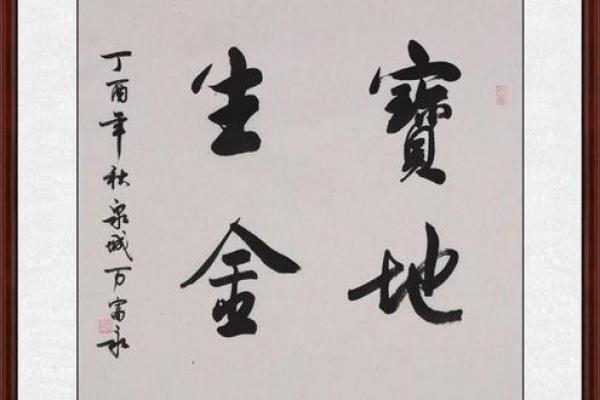 寶地
生金
丁酉年秋泉城万富永